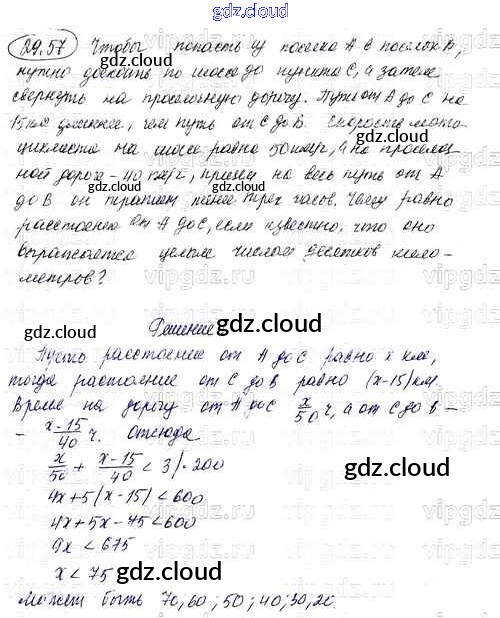 gdz.cloud
29.57 Чтобы попасть из поселка А в поселок В,
нужно доехать по шоссе до пункта С, а затем
свернуть на проселочную дорогу. Путь от А до С на
15 км длиннее, чем путь от С до В. Скорость мото-
циклиста на шоссе равна 50 км/ч, а на проселоч-
ной дороге - 40 км/ч, причем на весь путь от А
до В он тратит менее трех часов. Чему равно
расстояние от А до С, если известно, что оно
выражается целым числом десятков кило-
метров?
Решение
gdz.cloud
Пусть расстояние от А до С равно х км,
тогда растояние от С до В равно (х-15) км.
Время на дорогу от А до С x/50 ч, а от С до В -
- x-15/40 ч. Отсюда
x/50 + x-15/40 < 3 | · 200
4x+5(x-15)<600
4x+5x-75<600
9x < 675
x < 75
Может быть 70; 60; 50; 40; 30; 20.
gdz.cloud